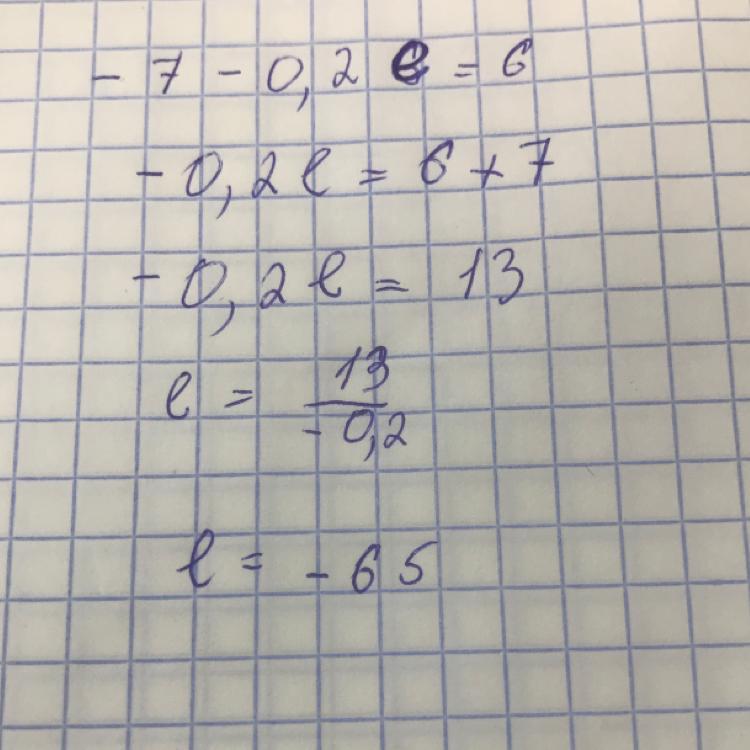 - 7 - 0,2 e = 6
- 0,2 l = 6 + 7
- 0,2 l = 13
l = 13 / - 0,2
l = - 65